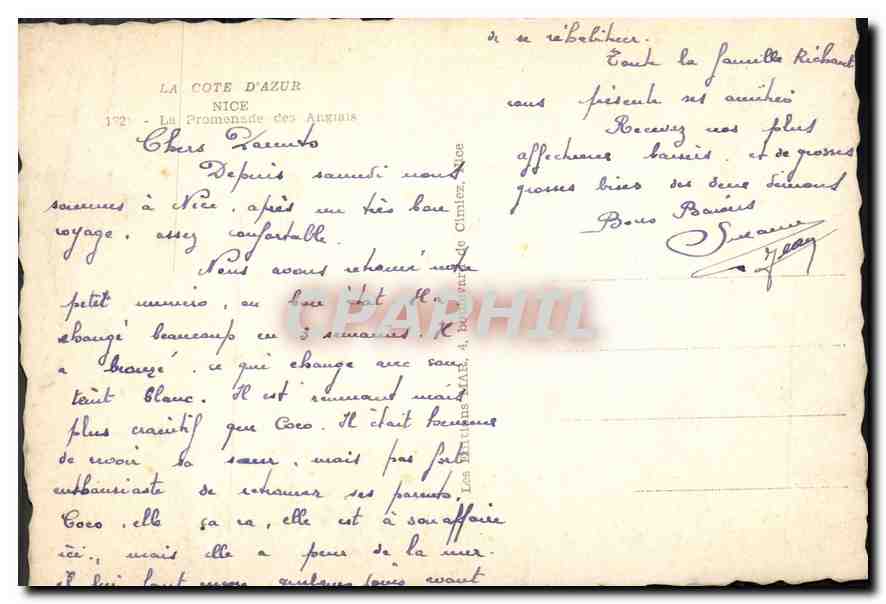 LA COTE D'AZUR
NICE
- La Promenade des Anglais
Chers Parents
Depuis samedi nous
sommes à Nice, après un très bon
voyage, assez confortable.
Nous avons retrouvé notre
petit, en bon état. Il a
changé beaucoup en 3 semaines. Il
a bronzé, ce qui change avec son
teint blanc. Il est remuant mais
plus craintif que Coco. Il était heureux
de revoir sa sœur, mais pas fort
enthousiaste de retrouver ses parents.
Coco, elle ça va, elle est à son affaire
ici, mais elle a peur de la mer.
il lui faut quelques jours avant
de se réhabituer.
Toute la famille Richard
vous présente ses amitiés
Recevez nos plus
affectueux baisers et de grosses
grosses bises des deux démons
Bons Baisers
Suzanne
Jean
Les Editions MAR, 4, boulevard de Cimiez, Nice
CPARPHIL